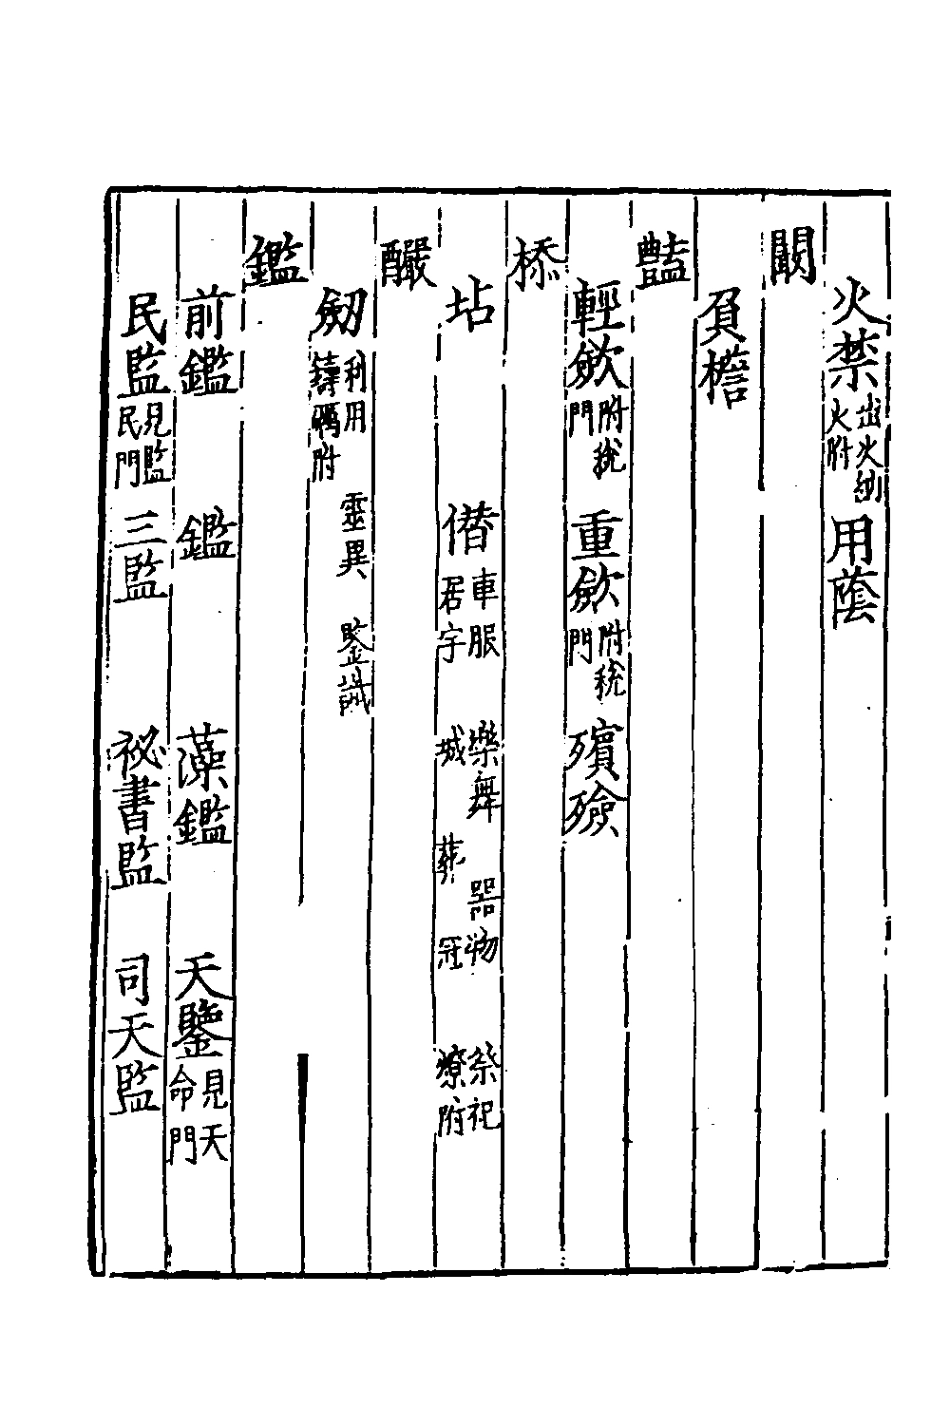 火禁出火納火附用蔭
闞
負檐
豔
輕歛附稅門重歛附稅門殯殮
㮇
坫 僭車服居宇 樂舞城 器物葬 冠 祭祀燎附
釅
劒利用鑄礪附 靈異 鑒識
鑑
前鑑 鑑 藻鑑 天鑒見天命門
民監見監民門 三監 祕書監 司天監